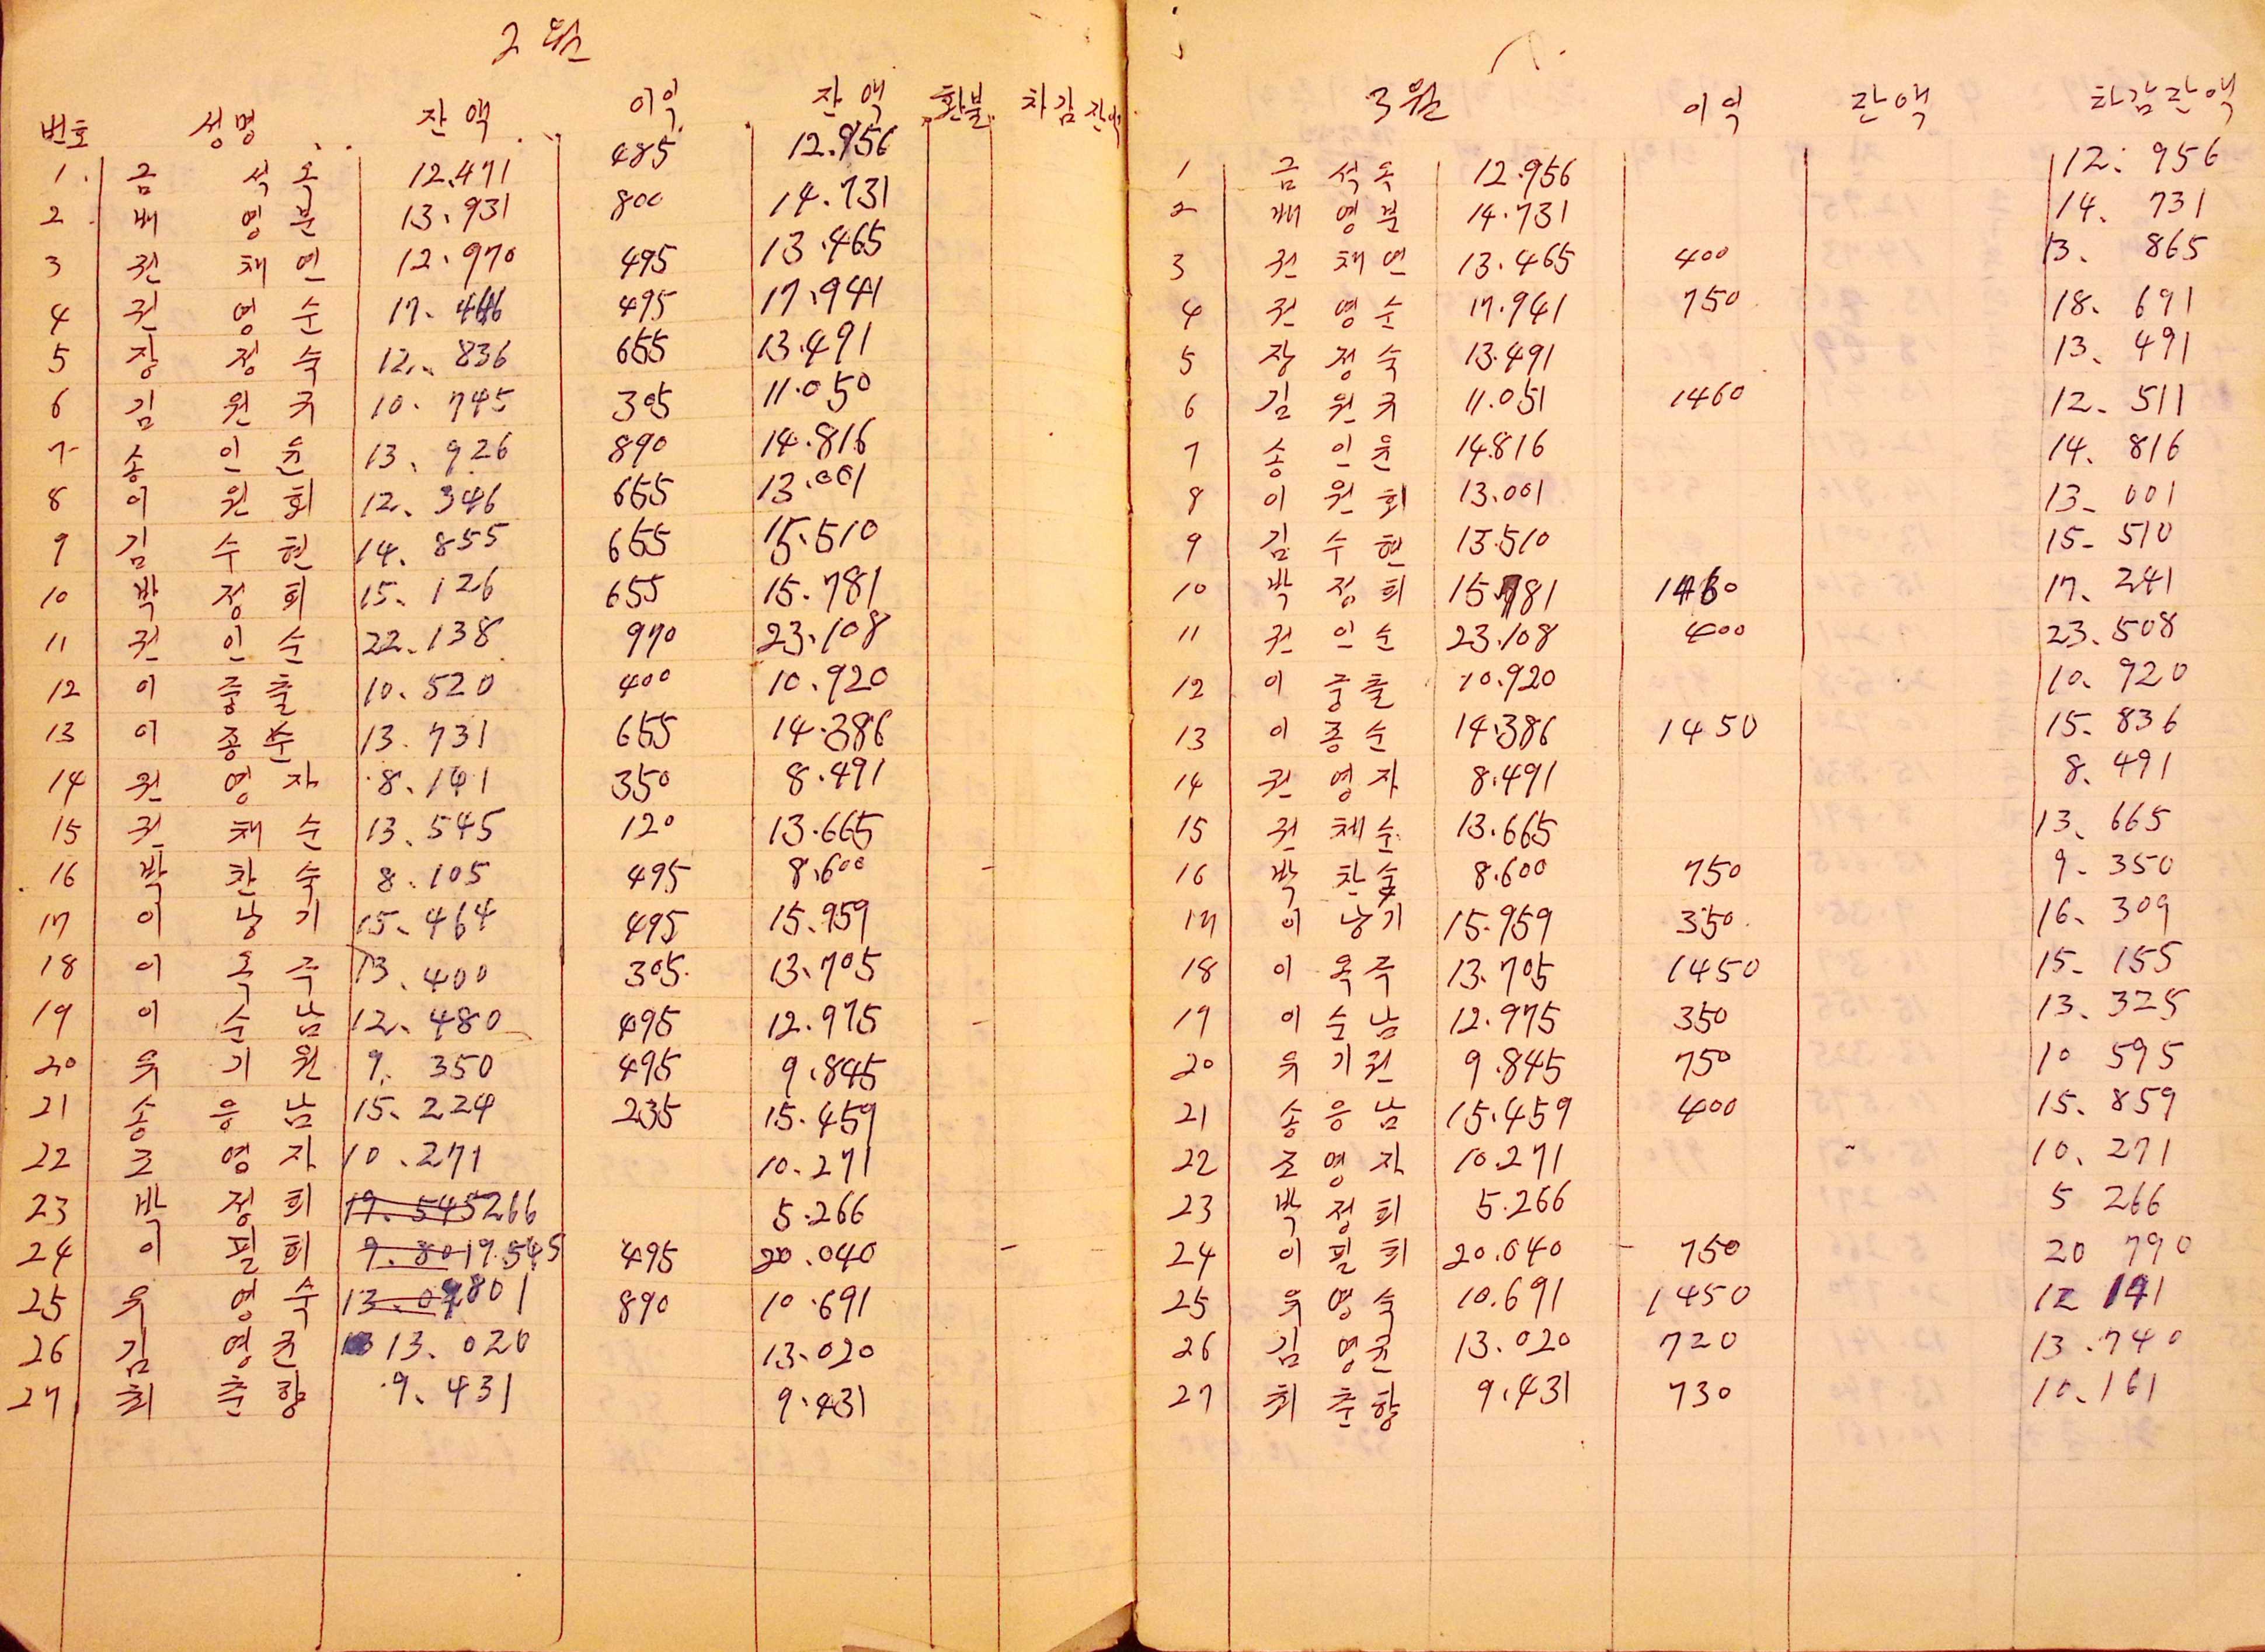 2월
번호 성명 잔액 이익 잔액 환불 차감잔액
1. 금석옥 12.471 485 12.956
2. 배영분 13.931 800 14.731
3 권채연 12.970 495 13.465
4 권영순 17.446 495 17.941
5 장정숙 12.836 655 13.491
6 김원규 10.745 305 11.050
7 송인윤 13.926 890 14.816
8 이원회 12.346 655 13.001
9 김수현 14.855 655 15.510
10 박정희 15.126 655 15.781
11 권인순 22.138 970 23.108
12 이중출 10.520 400 10.920
13 이종순 13.731 655 14.386
14 권영자 8.141 350 8.491
15 권채순 13.545 120 13.665
16 박찬숙 8.105 495 8.600
17 이낭기 15.464 495 15.959
18 이옥주 13.400 305 13.705
19 이순남 12.480 495 12.975
20 우기원 9. 350 495 9.845
21 송응남 15.224 235 15.459
22 조영자 10.271 10.271
23 박정희 5266 5.266
24 이필희 19.545 495 20.040
25 우영숙 9801 890 10.691
26 김영균 13.020 13.020
27 최춘향 9.431 9.431
3월 이익 잔액 차감잔액
1 금석옥 12.956 12.956
2 배영분 14.731 14.731
3 권채연 13.465 400 13.865
4 권영순 17.941 750 18.691
5 장정숙 13.491 13.491
6 김원규 11.051 1460 12.511
7 송인윤 14.816 14.816
8 이원회 13.001 13.001
9 김수현 15.510 15.510
10 박정희 15.781 1460 17.241
11 권인순 23.108 400 23.508
12 이중출 10.920 10.920
13 이종순 14.386 1450 15.836
14 권영자 8.491 8.491
15 권체순 13.665 13.665
16 박찬숙 8.600 750 9.350
17 이낭기 15.959 350 16.309
18 이옥주 13.705 1450 15.155
19 이순남 12.975 350 13.325
20 우기원 9.845 750 10 595
21 송응남 15.459 400 15.859
22 조영자 10.271 10.271
23 박정희 5.266 5 266
24 이필희 20.040 750 20 790
25 우영숙 10.691 1450 12 141
26 김영균 13.020 720 13.740
27 최춘향 9.431 730 10.161